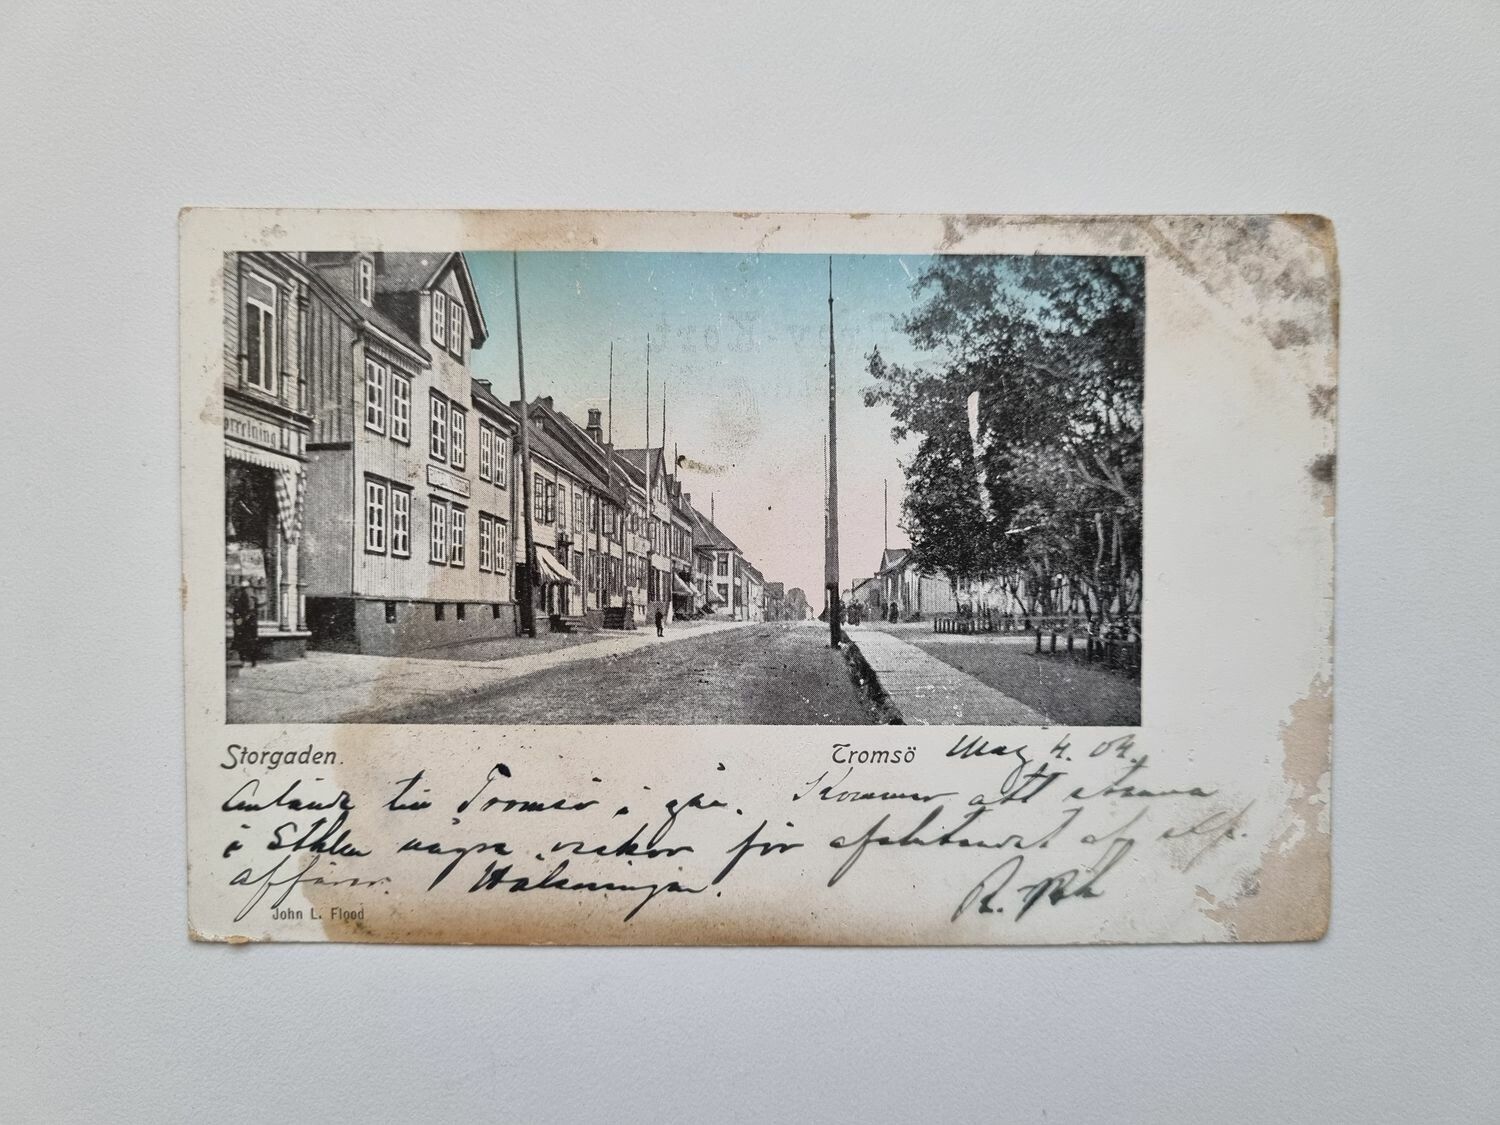 orretning
Storgaden.
Tromsö
May 4. 04.
Anlände till Tromsö i går. Kommer att stanna
i Sthlm några veckor för afslutandet af
affärer. Hälsningar.
R.
John L. Flood